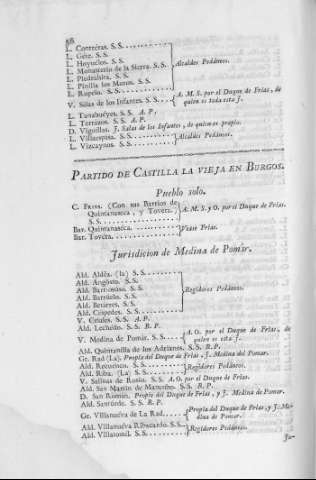 58
L. Contreras. S. S.
L. Gete. S. S.
L. Hoyuelos. S. S.
L. Monasterio de la Sierra. S. S.
L. Piedrahita. S. S.
L. Pinilla los Moros. S. S.
L. Rupelo. S. S.
Alcaldes Pedáneos.
V. Salas de los Infantes. S. S. A. M. S. por el Duque de Frias, de quien es toda esta J.
L. Tañabueyes. S. S. A. P.
L. Terrazas. S. S. A. P.
D. Viguillas. J. Salas de los Infantes, de quien es propio.
L. Villaespasa. S. S.
L. Vizcaynos. S. S.
Alcaldes Pedáneos.
PARTIDO DE CASTILLA LA VIEJA EN BURGOS.
Pueblo solo.
C. FRIAS. (Con sus Barrios de Quintanaseca, y Tovera. S. S. A. M. S. y O. por el Duque de Frias.
Bar. Quintanaseca.
Bar. Tovera.
Vease Frias.
Jurisdicion de Medina de Pomár.
Ald. Aldéa. (la) S. S.
Ald. Angosto. S. S.
Ald. Barruelo. S. S.
Ald. Céspedes. S. S.
Regidores Pedáneos.
V. Criales. S. S. A. P.
Ald. Lechedo. S. S. R. P.
V. Medina de Pomár. S. S. A. O. por el Duque de Frias, de quien es esta J.
Ald. Quintanilla de los Adrianos. S. S. R. P.
Gr. Rad (La). Propia del Duque de Frias, J. Medina del Pomar.
Ald. Recuenco. S. S.
Ald. Riba. (La) S. S.
Regidores Pedáneos.
V. Salinas de Rosío. S. S. A. O. por el Duque de Frias.
Ald. San Martin de Mancobo. S. S. R. P.
D. San Román. Propio del Duque de Frias, y J. Medina de Pomar.
Ald. Santurde. S. S. R. P.
Gr. Villanueva de La Rad. Propia del Duque de Frias, y J. Medina de Pomar.
Ald. Villanueva S. S.
Ald. Villatomil. S. S.
Regidores Pedáneos.
Ju-